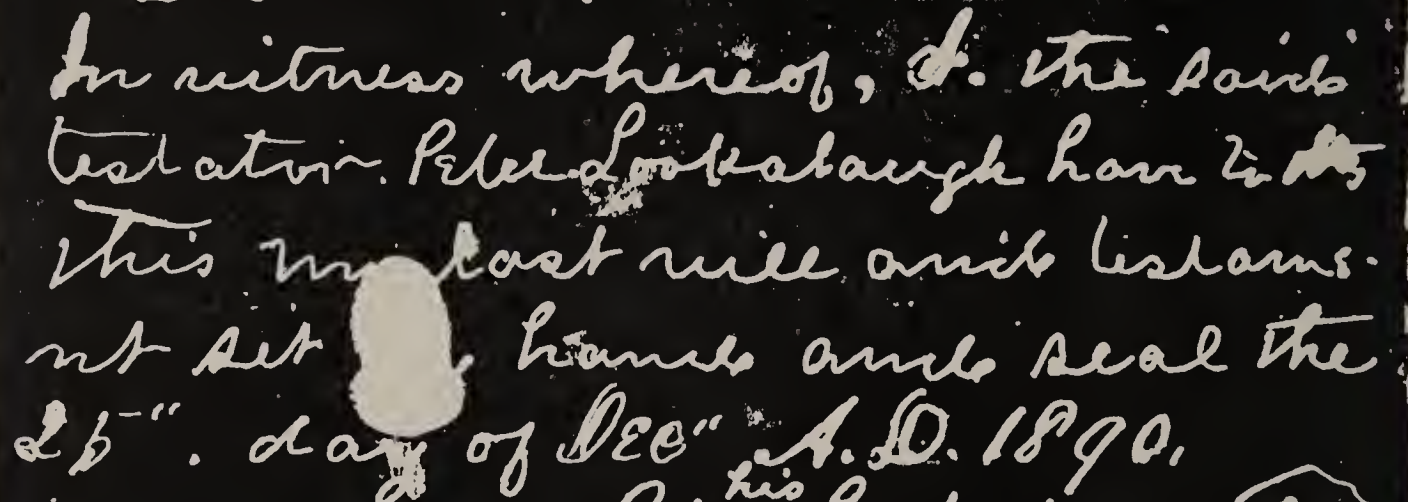 In witness whereof, I. the said
testator. Peter Lookabaugh have to
this last will and testame-
nt set hand and seal the
25-". day of Dec" A.D. 1890.
his